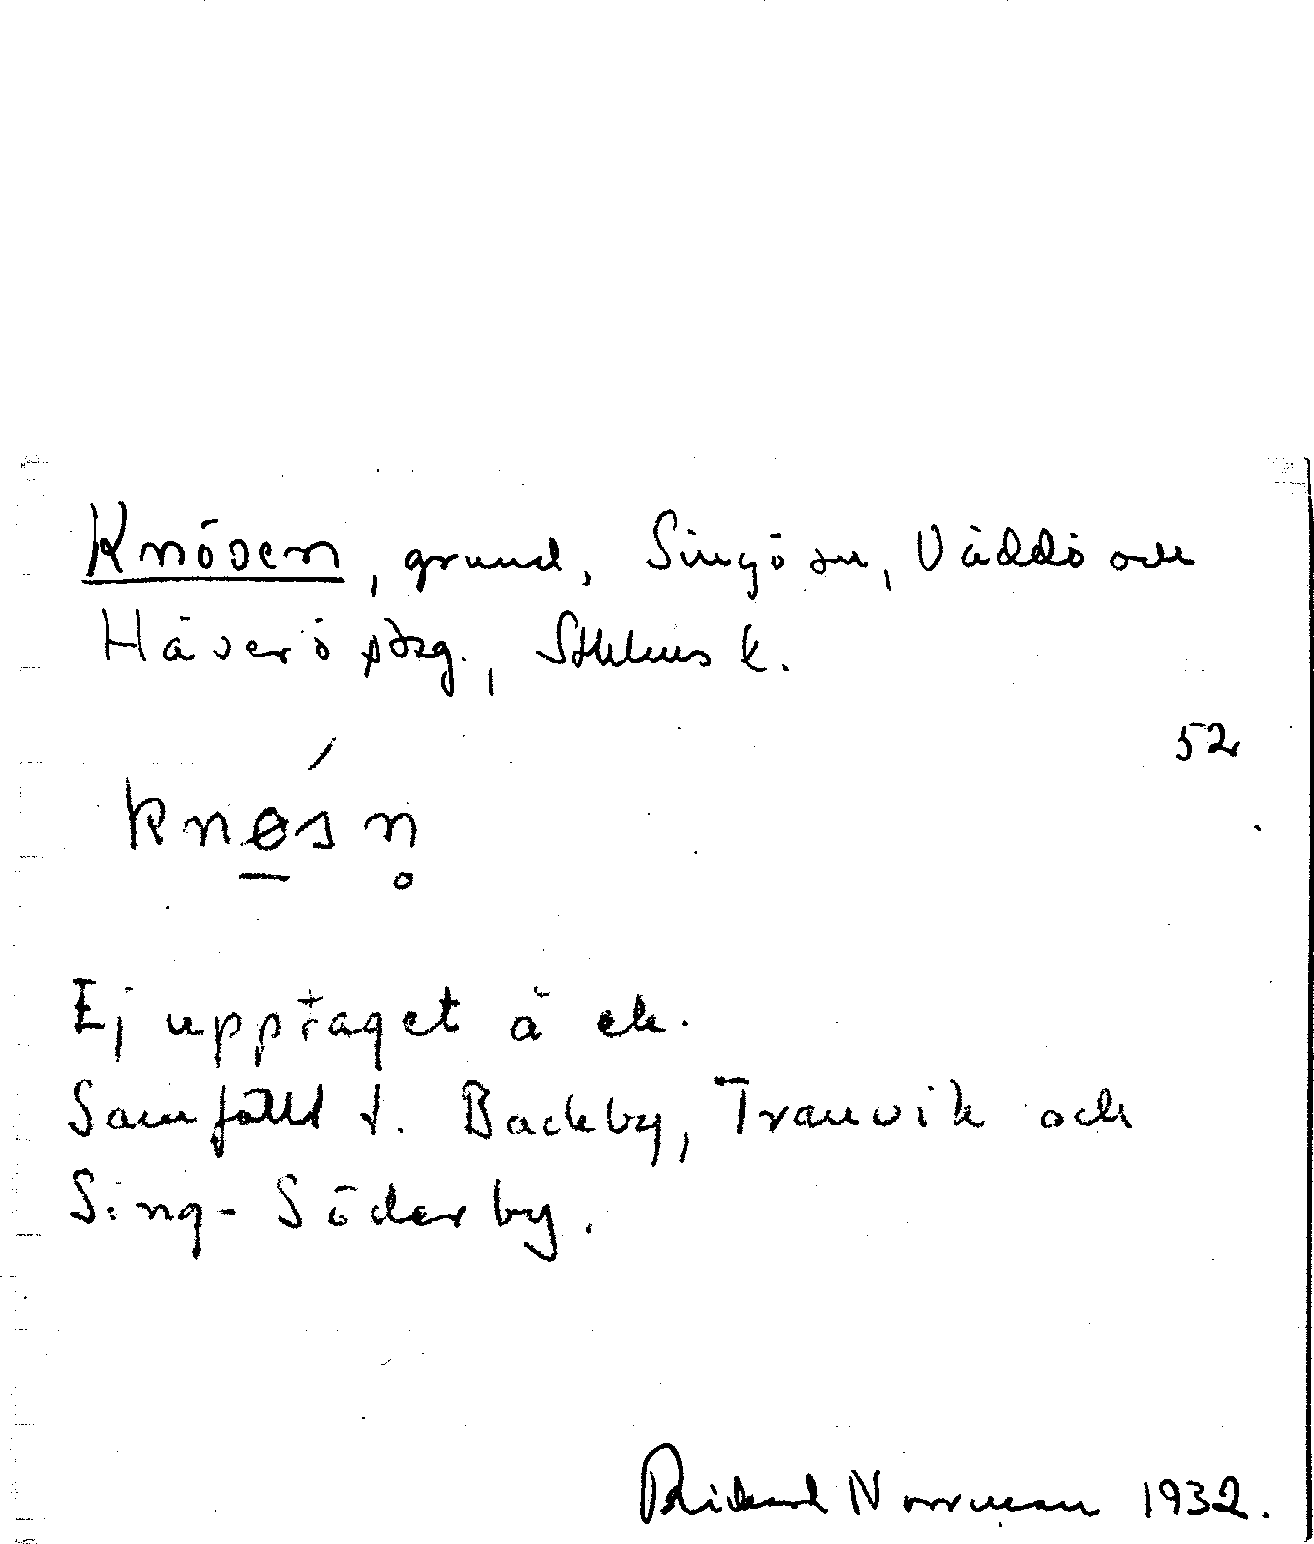 Knösen, grund, Singö sn, Väddö och
Häverö skg., Sthlms l.
52
knøs n̥
Ej upptaget å ek.
Samfällt f. Backby, Tranvik och
Sing-Söderby.
Rickard Norrman 1932.